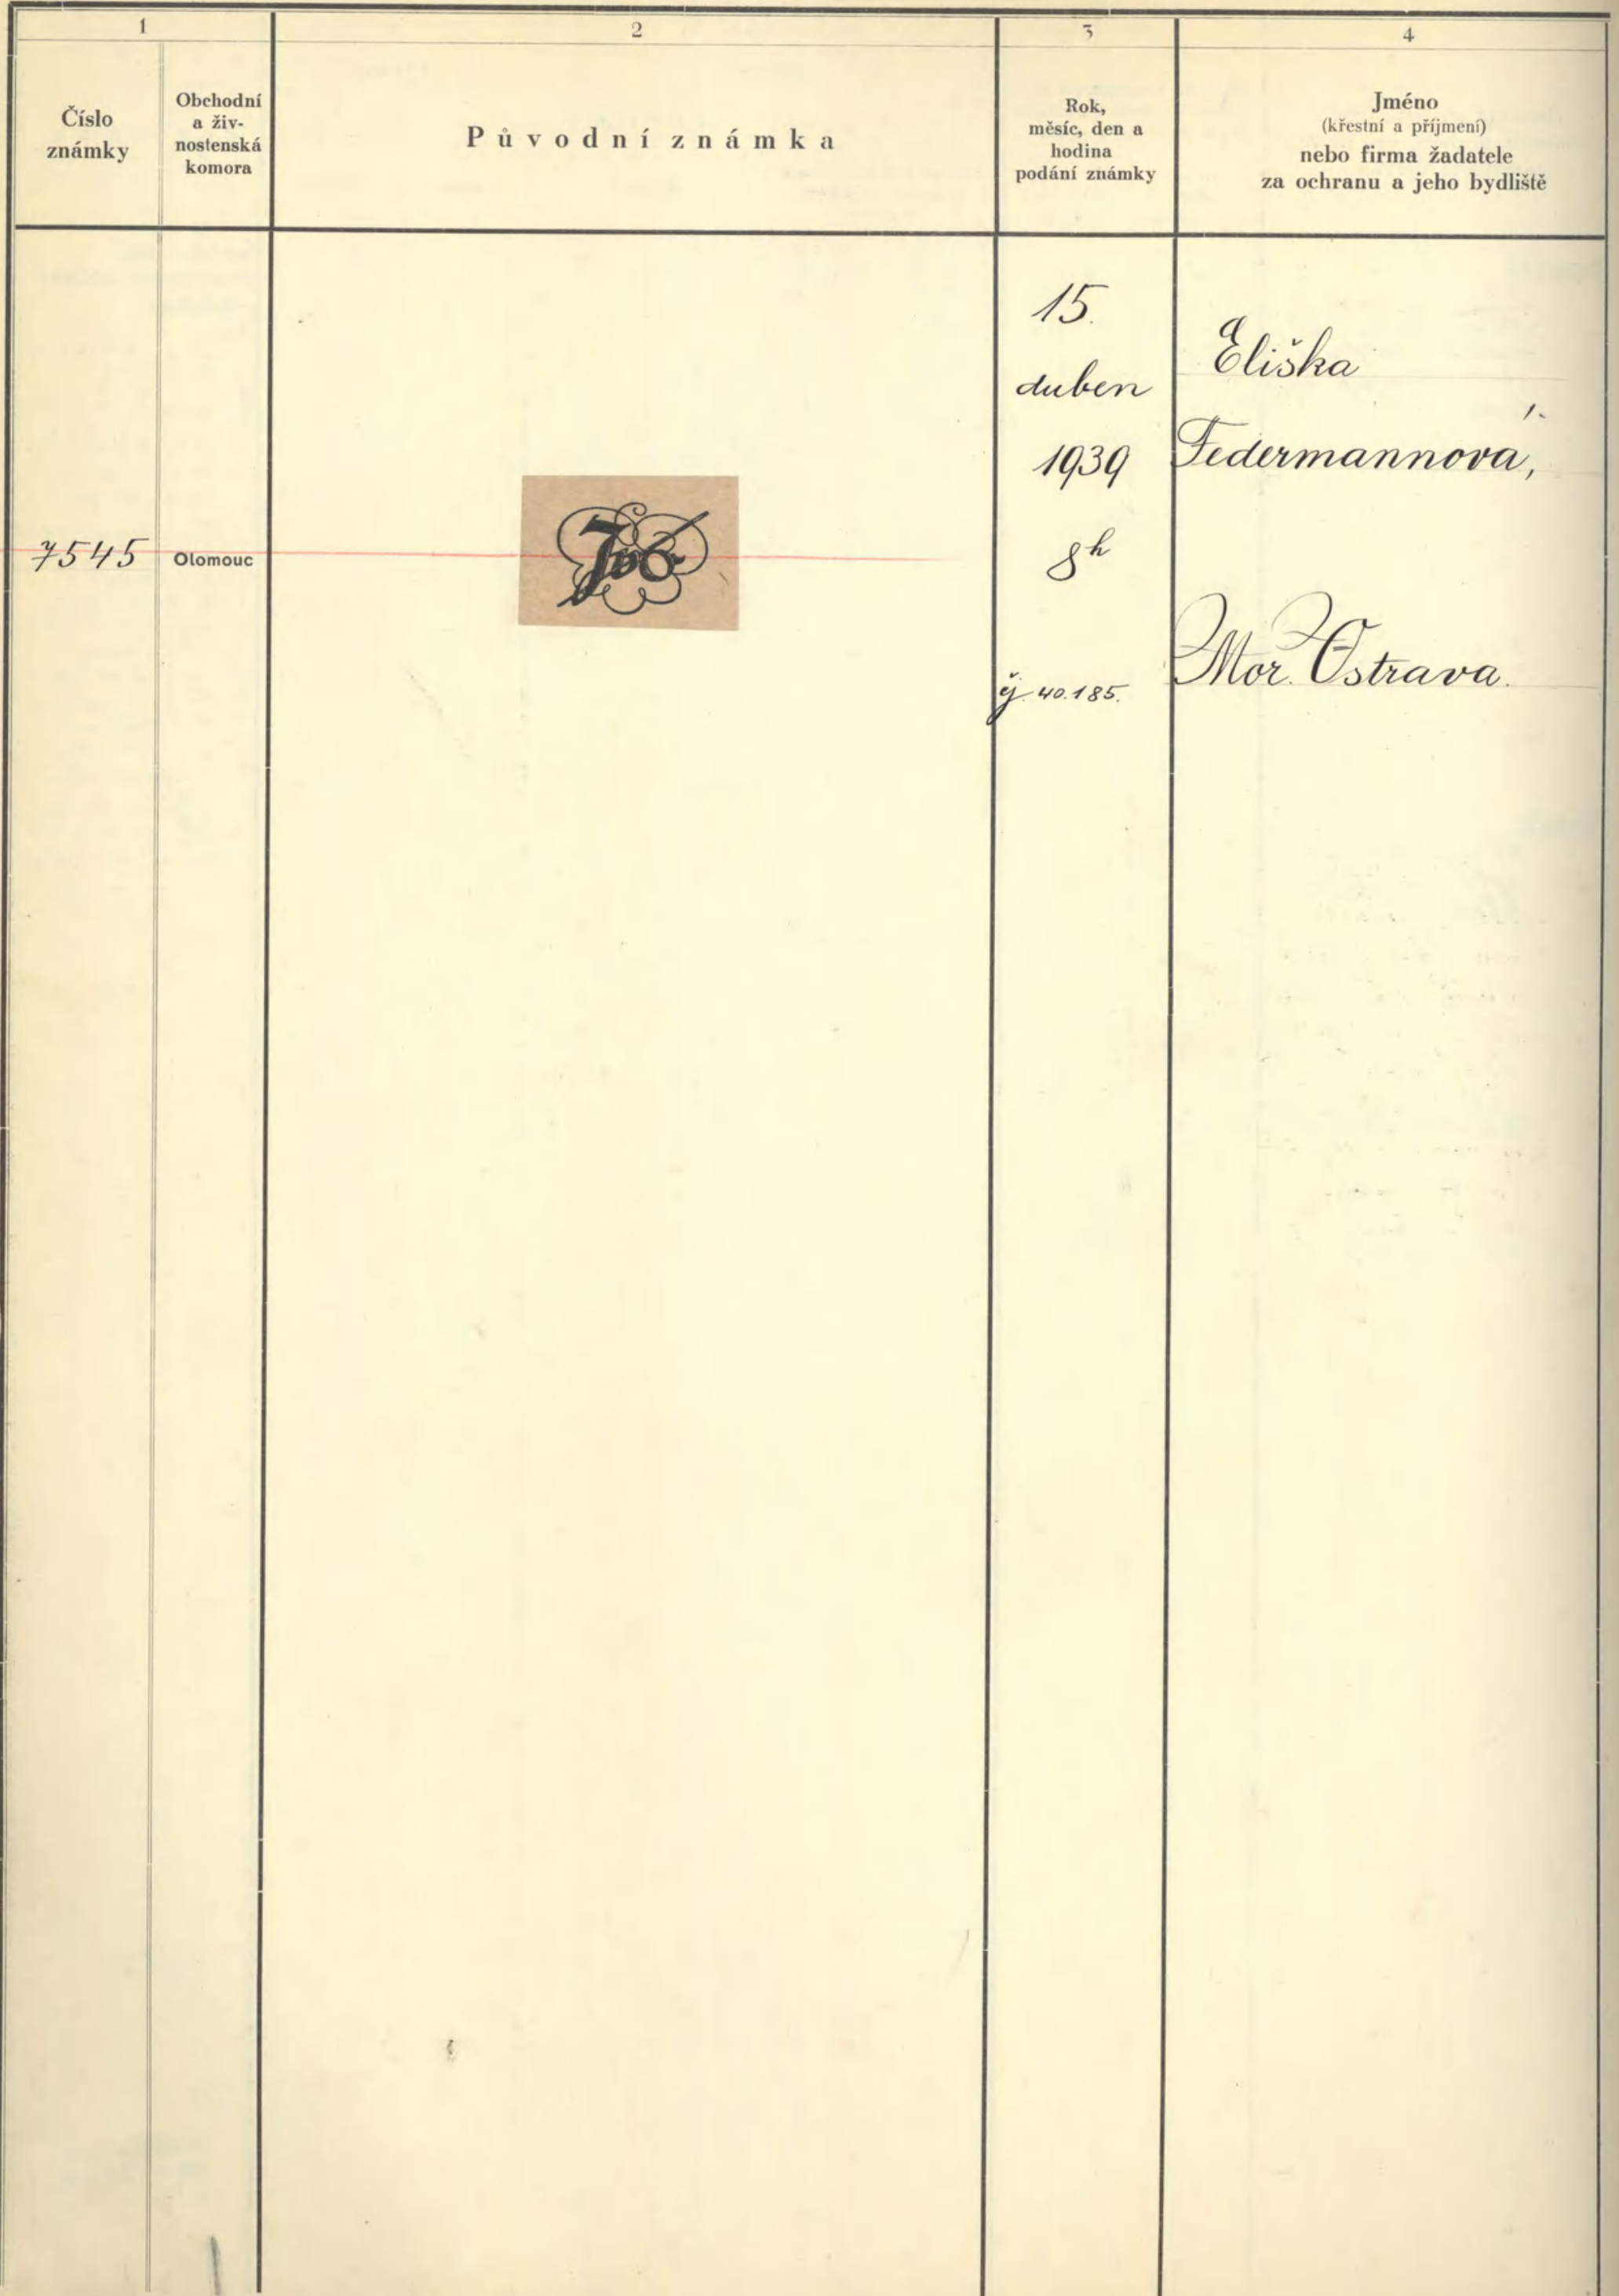 1
2
3
4
Číslo
známky
Obchodní
a živ-
nostenská
komora
Původní známka
Rok,
měsíc, den a
hodina
podání známky
Jméno
(křestní a příjmení)
nebo firma žadatele
za ochranu a jeho bydliště
7545
Olomouc
15.
duben
1939
8h
čj 40.185.
Eliška
Federmannová,
Mor. Ostrava.